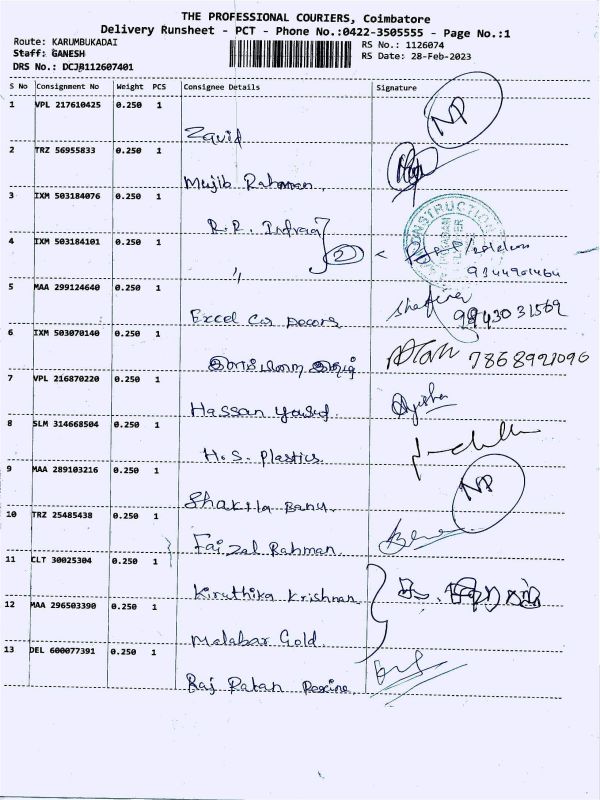 THE PROFESSIONAL COURIERS, Coimbatore
Delivery Runsheet - PCT - Phone No.:0422-3505555 - Page No.:1
Route: KARUMBUKADAI
RS No.: 1126074
Staff: GANESH
RS Date: 28-Feb-2023
DRS No.: DCJB112607401
S No Consignment No Weight PCS Consignee Details Signature
1 VPL 217610425 0.250 1
Zavid NP
2 TRZ 56955833 0.250 1
Mujib Rahman
3 IXM 503184076 0.250 1
R.R. Infraa
CONSTRUCTION
4 IXM 503184101 0.250 1
〃 2 9344901464
5 MAA 299124640 0.250 1
Excel Car Decors 9943031569
6 IXM 503070140 0.250 1
7868921096
7 VPL 216870220 0.250 1
Hassan Yusuf Ayisha
8 SLM 314668504 0.250 1
H.S. Plastics
9 MAA 289103216 0.250 1
Shakila Banu NP
10 TRZ 25485438 0.250 1
Faizal Rahman
11 CLT 30025304 0.250 1
Kiruthika Krishnan
12 MAA 296503390 0.250 1
Malabar Gold
13 DEL 600077391 0.250 1
Raj Ratan Rexine